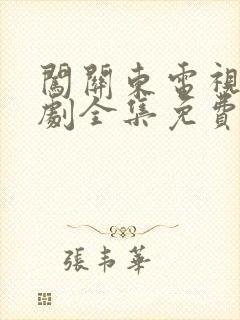 闖關東電視
劇全集免費
張韦華